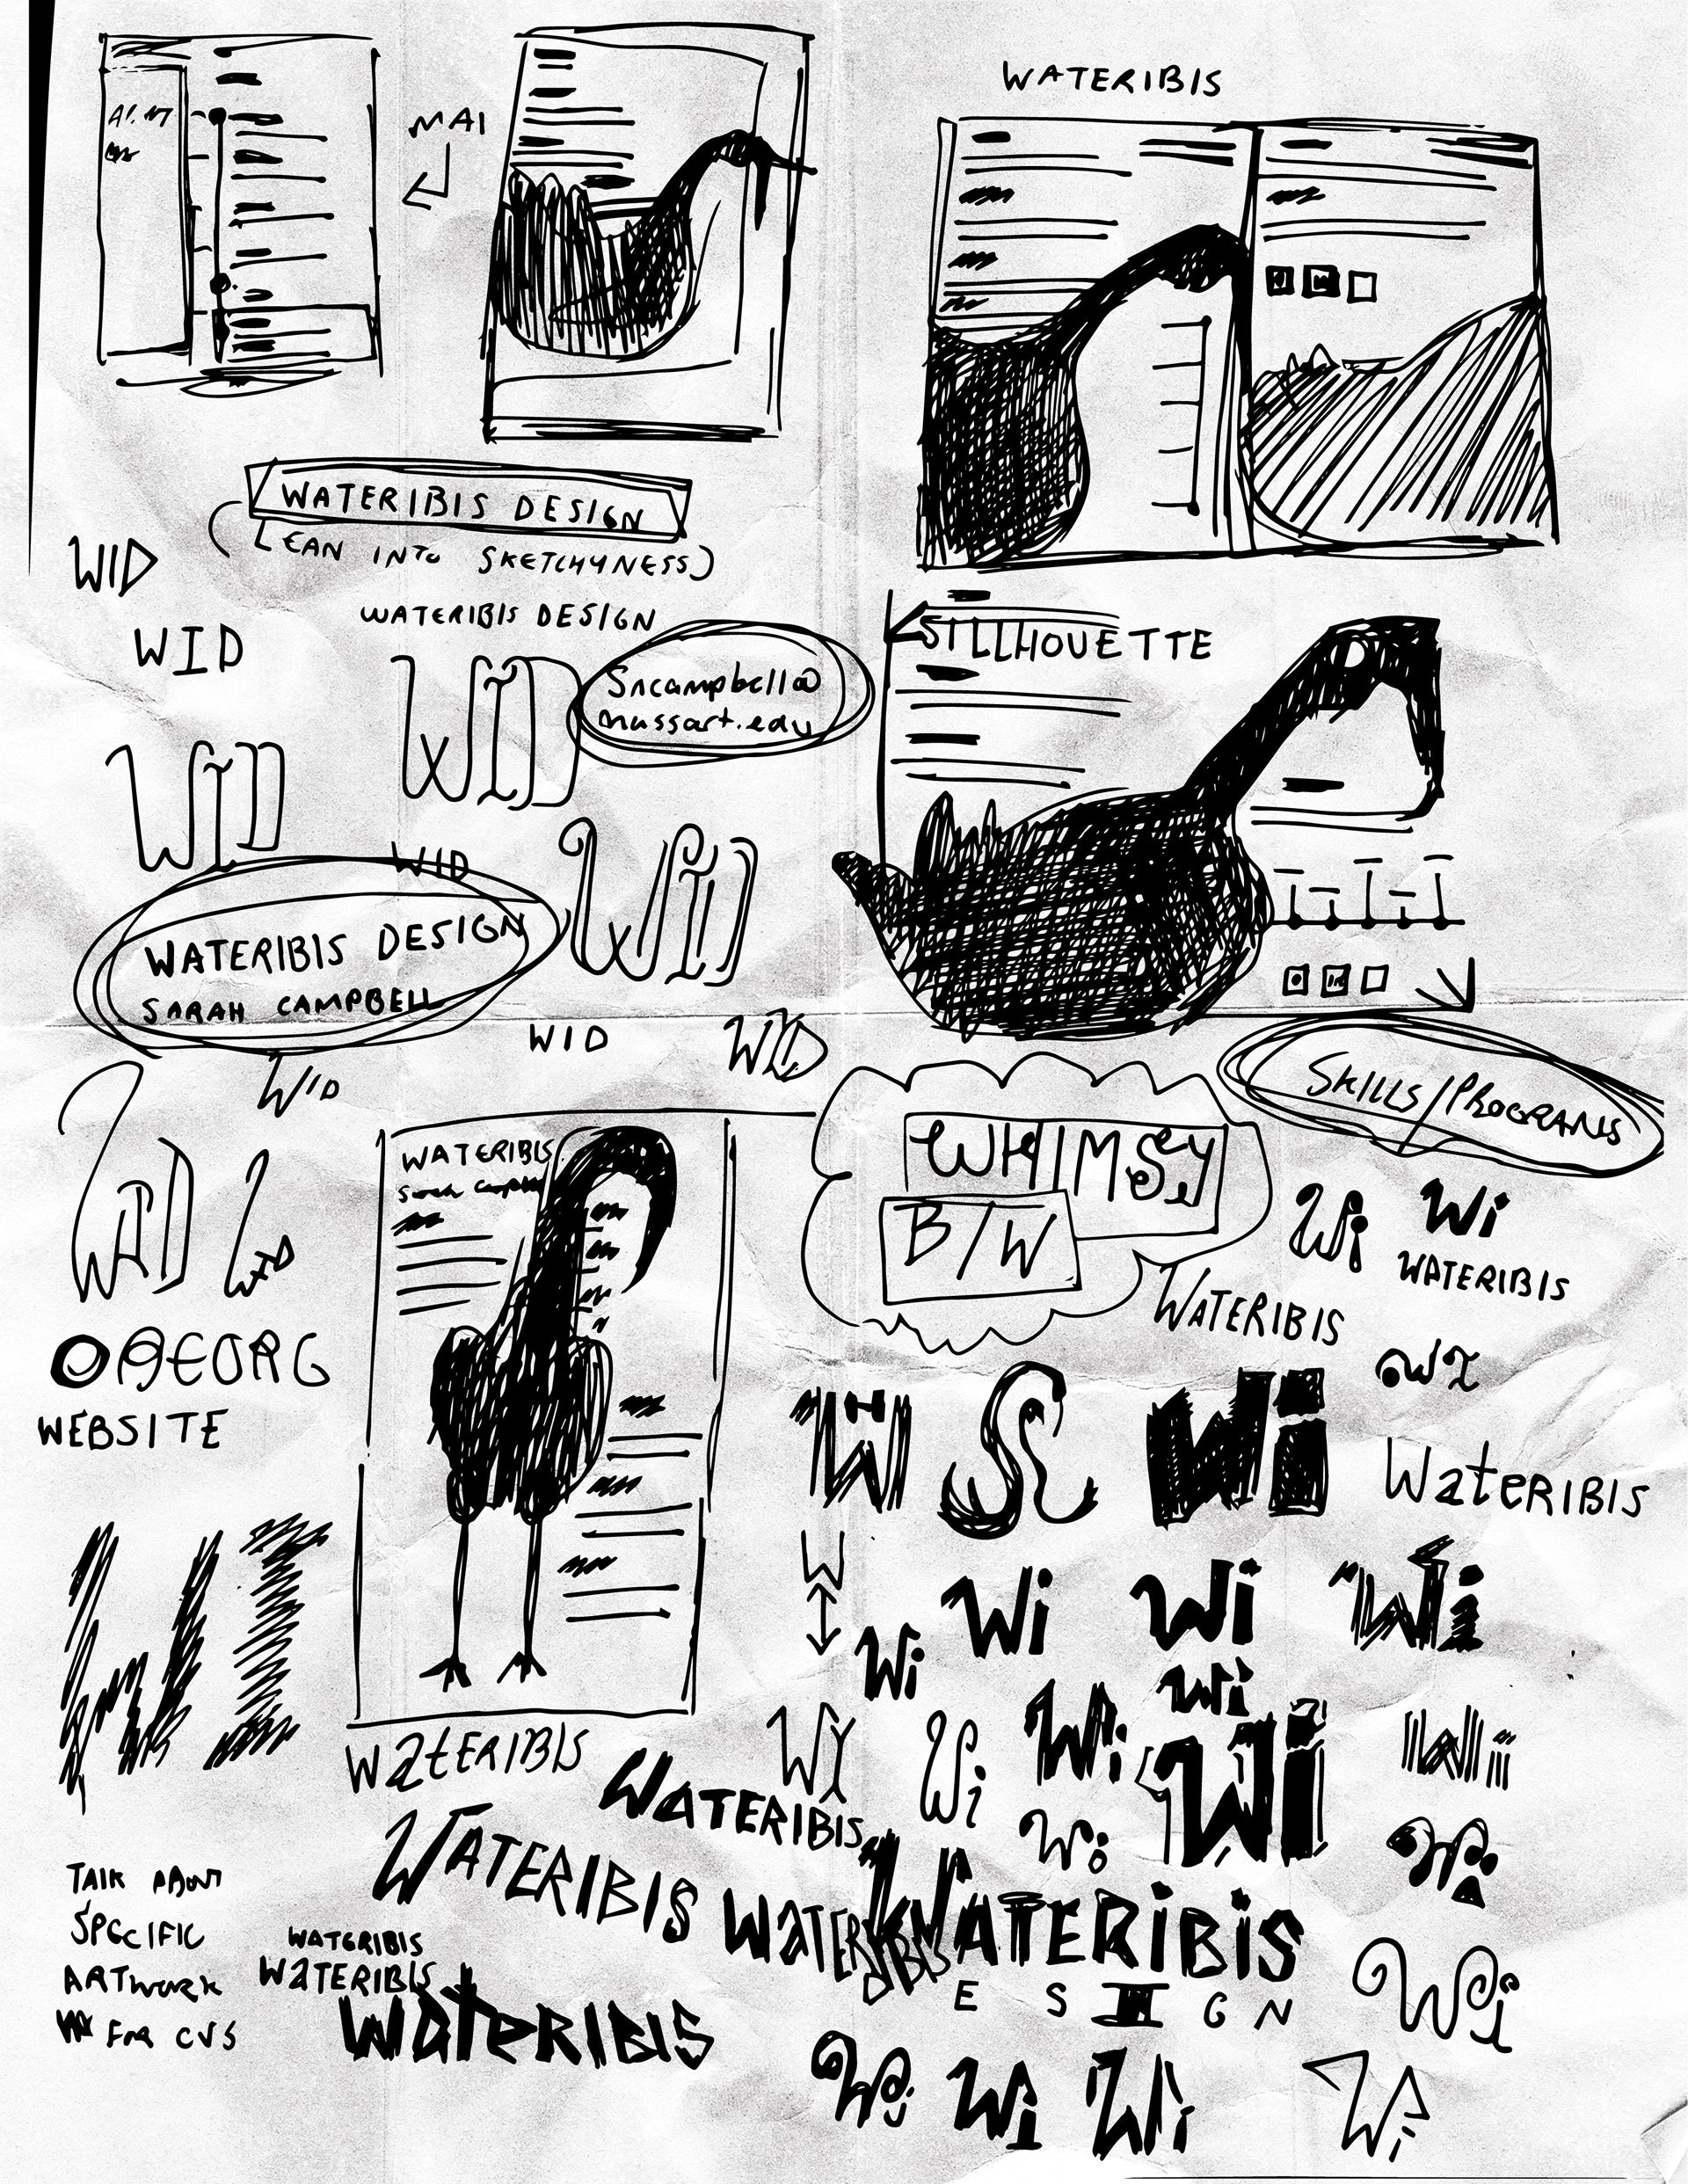 MAI
WATERIBIS
WATERIBIS DESIGN
(LEAN INTO SKETCHYNESS)
WID
WATERIBIS DESIGN
WID
SILLHOUETTE
Sncampbell@
massart.edu
WID
WID
WID
WID
WATERIBIS DESIGN
SARAH CAMPBELL
WID
WID
WID
SKILLS/PROGRAMS
WHIMSEY
B/W
WATERIBIS
Sarah Campbell
WID
WID
Wi
Wi
WATERIBIS
WATERIBIS
WEBSITE
Wi
Wi
WI
WateRIBIS
WI
W
Wi
Wi
Wi
Wi
Wi
Wi
Wi
Wi
Wi
Wi
WateRIBIS
WATERIBIS
WATERIBIS
WATERIBIS
WATERIBIS
ESIGN
TALK ABOUT
SPECIFIC
ARTWORK
FOR CVS
WATERIBIS
WATERIBIS
WateRIBIS
Wi
Wi
Wi
Wi
Wi